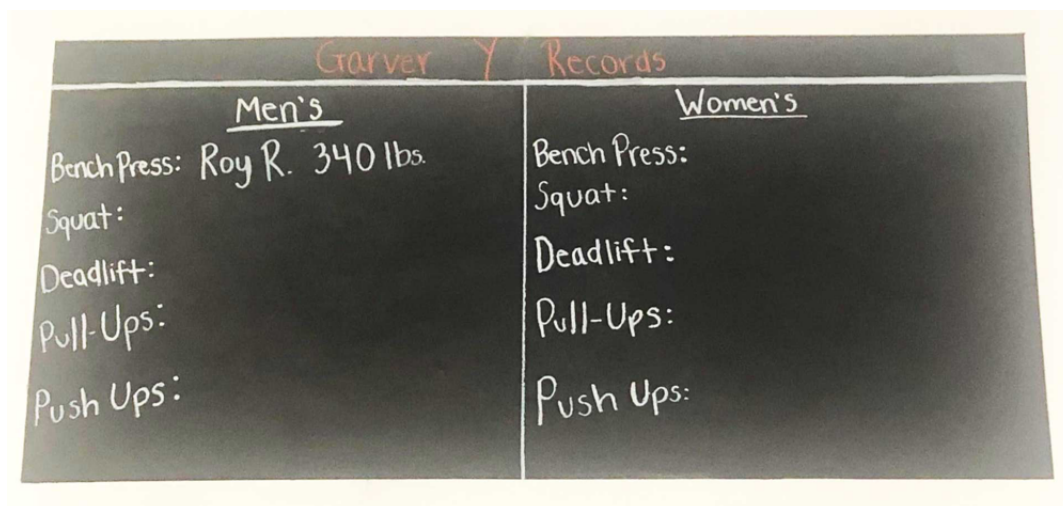 Garver Y Records
Men's
Bench Press: Roy R. 340 lbs.
Squat:
Deadlift:
Pull-Ups:
Push Ups:
Women's
Bench Press:
Squat:
Deadlift:
Pull-Ups:
Push Ups: